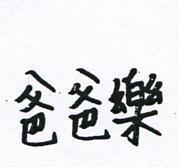 爸爸樂